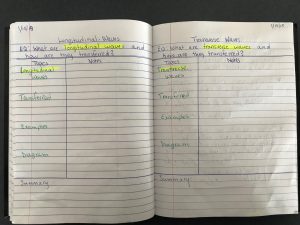 Longitudinal Waves
EQ: What are longitudinal waves and
how are they transferred?
Topics Notes
Longitudinal
Waves
Transferred
Examples
Diagram
Summary
Transverse Waves
EQ: What are transverse waves and
how are they transferred?
Topics Notes
Transverse
Waves
Transferred
Examples
Diagram
Summary: